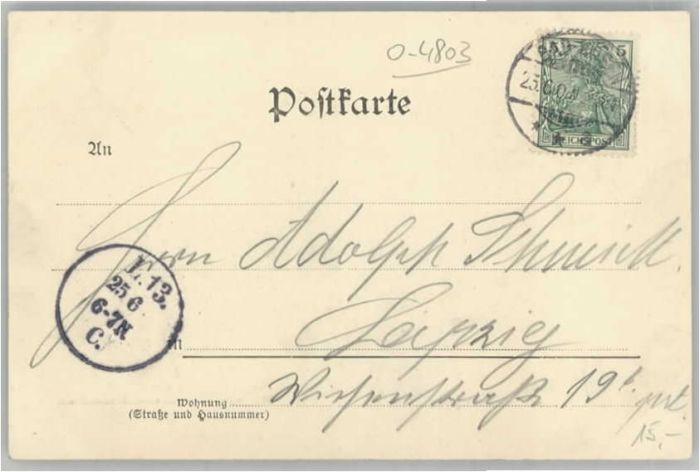 0-4803
5
BAD
25.6.0
REICHSPOST
Postkarte
An
Herrn Adolph Schmidt.
L. 13.
25 6
6-7N
C.
in Leipzig
Wiesenstraße 19b
Wohnung
(Straße und Hausnummer)
15,-